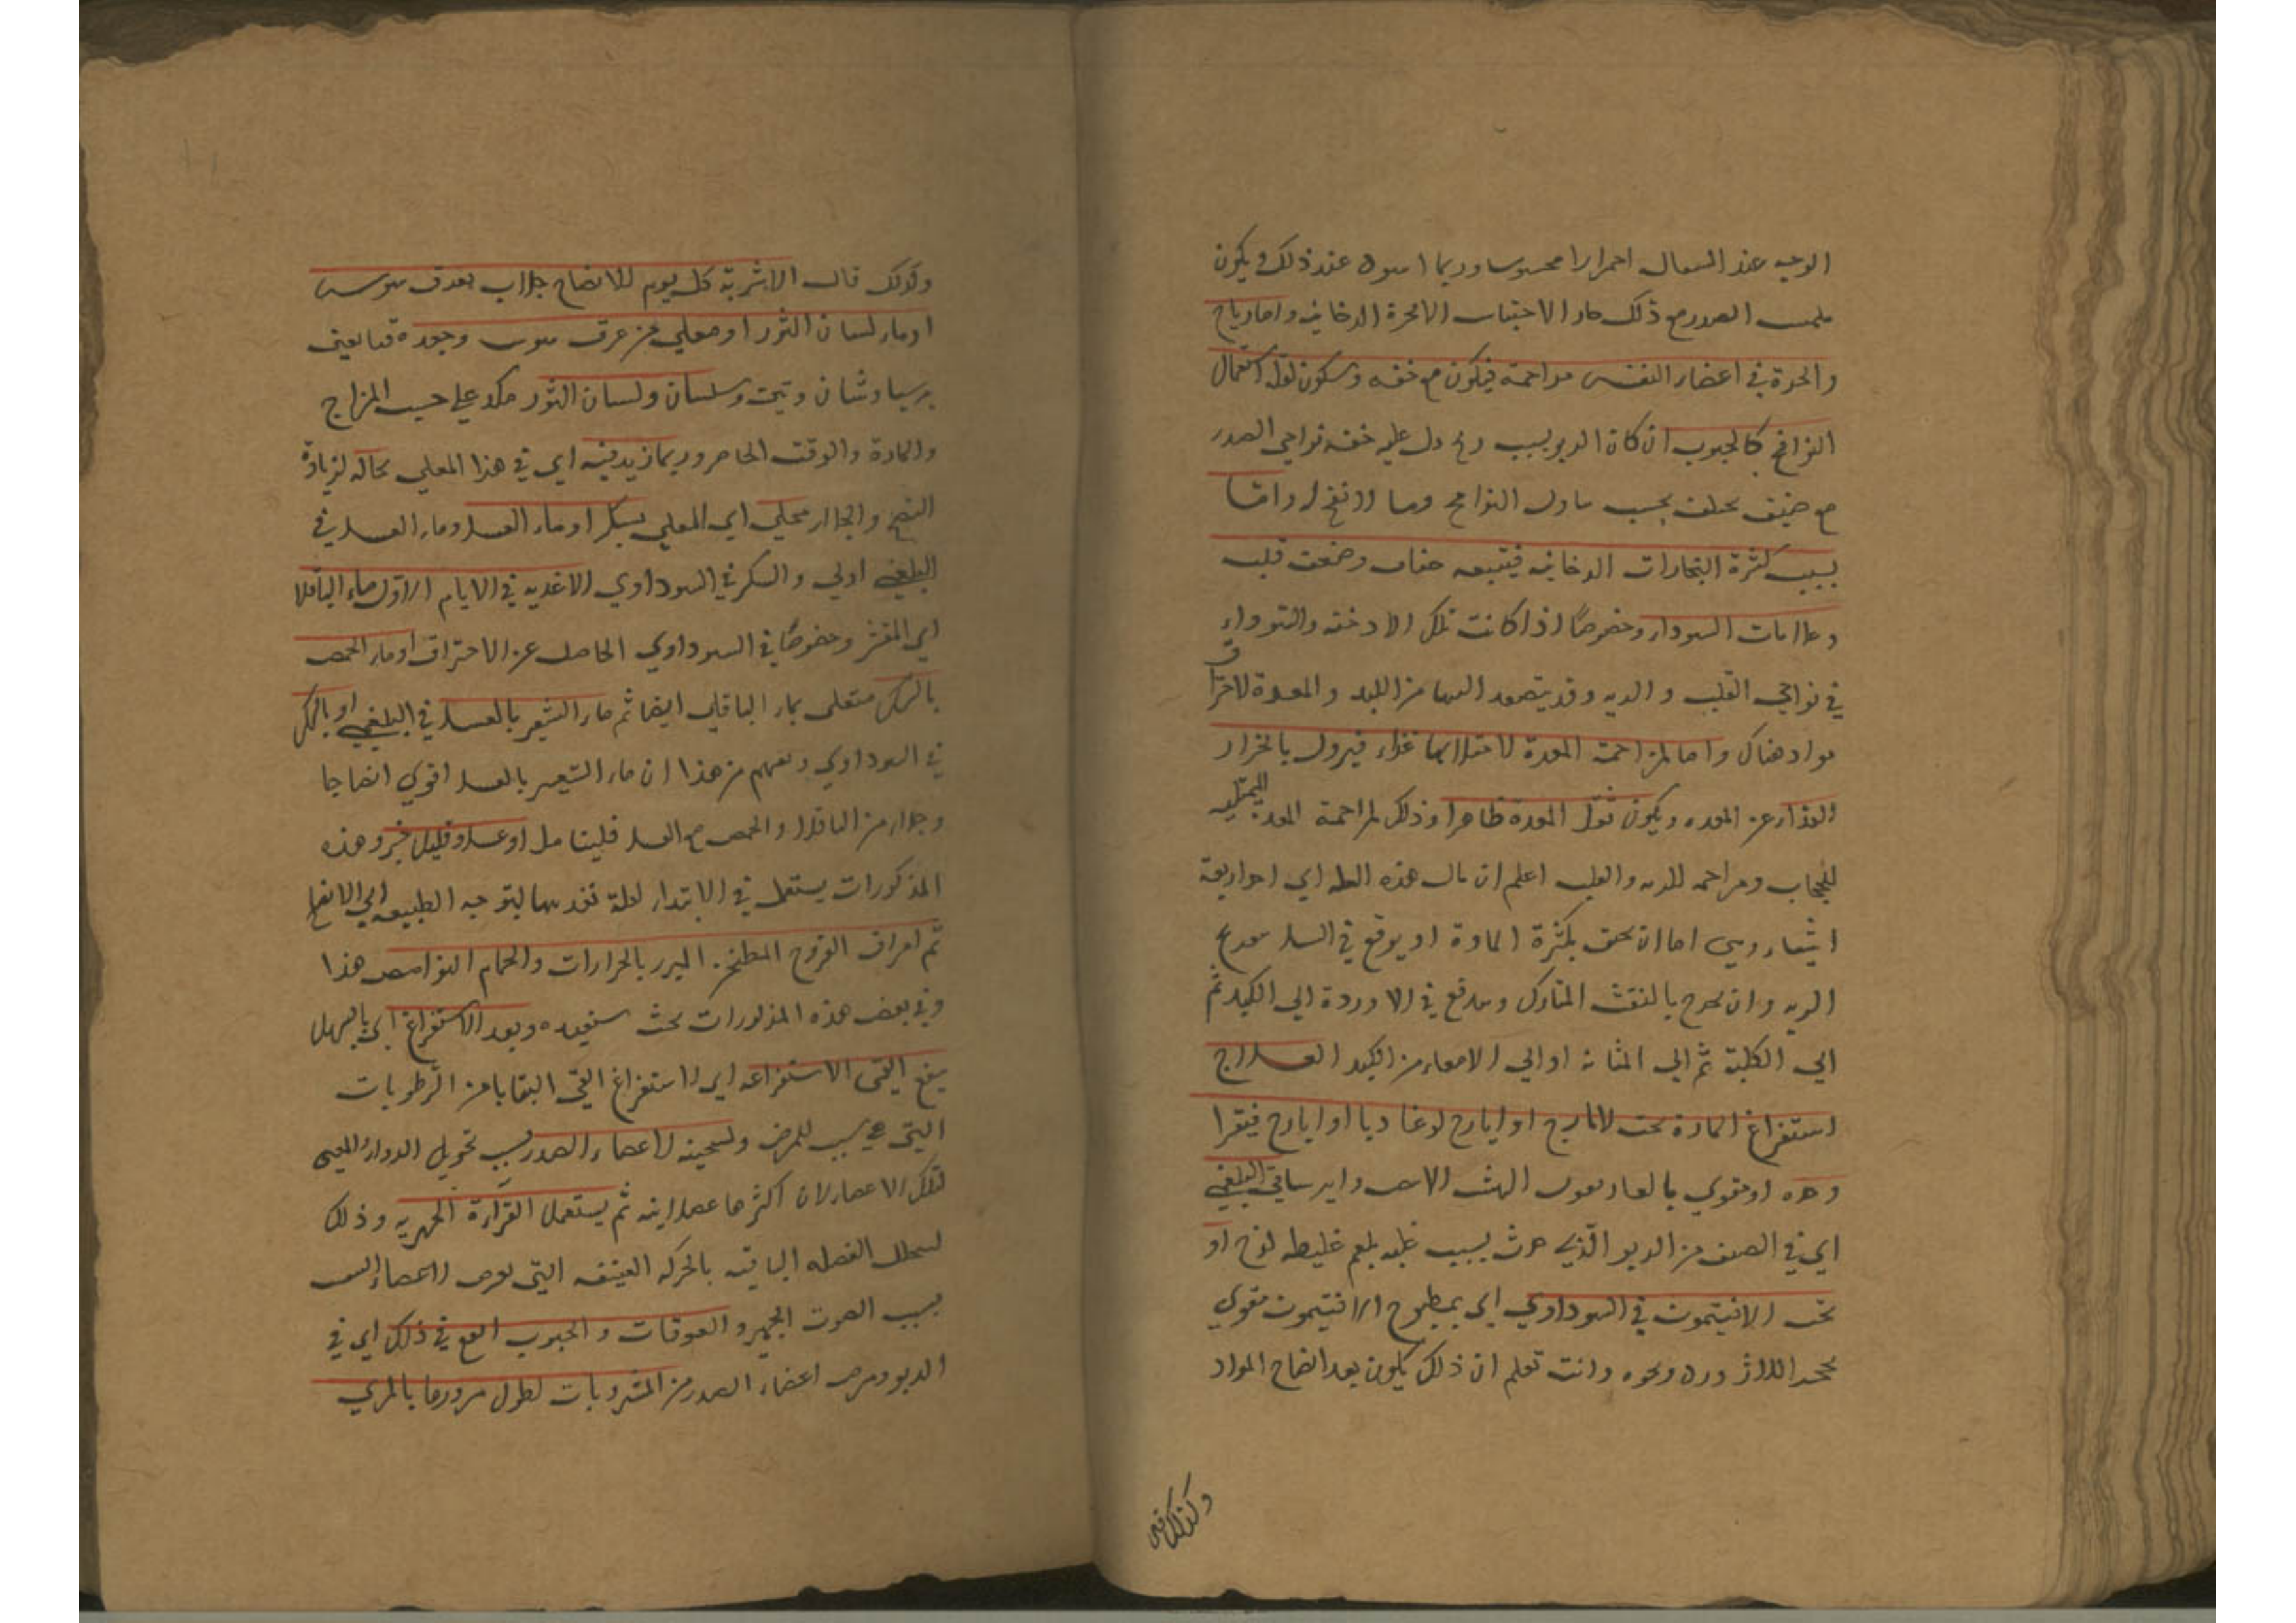 الوجه عند السعال احمرارا محسوسا وربما اسود عند ذلك ويكون
ملمس الصدر مع ذلك حار الاحتباس الابخرة الدخانيه واما رياح
في اعضاء النفس مزاحمة فيكون مع خفه وسكون لقلة استعمال
النوافخ كالحبوب ان كان الربو بسبب ريح دل عليه خفه نواحي الصدر
مع ضيق يختلف بحسب تناول النوافخ وما لا نفخ له واما
بسبب كثرة البخارات الدخانيه فيتبعه خفقان وضعف قلب
وعلامات السوداء وخصوصًا اذا كانت تلك الادخنه والتوداء
في نواحي القلب والريه وقد يتصعد اليها من الكبد والمعدة لاحتراق
مواد هناك واما لمزاحمة المعدة لامتلائها غذاء فيزول بانحدار
الغذاء عن المعده ويكون ثقل المعدة ظاهرا وذلك لمزاحمة المعدة الممتليه
للحجاب ومزاحمه للريه والقلب اعلم ان مال هذه العله الي احد اربعة
اشياء رديه اما ان يختنق بكثرة المادة او يوقع في السل
الريه وان يخرج بالنفث المتدارك ويندفع في الاوردة الي الكبد ثم
الي الكلية ثم الي المثانه او الي الامعاء من الكبد العلاج
استفراغ المادة بحب الايارج او ايارج لوغاديا او ايارج فيقرا
وحده او مقوي بالغاريقون الهش الابيض في البلغمي
اي في الصنف من الربو الذي حدث بسبب غلبه بلغم غليظه لزج او
بحب الافتيمون في السوداوي اي بمطبوخ الافتيمون مقوي
بحجر اللازورد ونحوه وانت تعلم ان ذلك يكون بعد انضاج المواد
وكذلك قال
وكذلك قال الاشربة كل يوم للانضاج جلاب بعرق سوس
او ماء لسان الثور او مغلي من عرق سوس وجعده قنا بعينه
برسياوشان وتين وسبستان ولسان الثور مكرر علي حسب المزاج
والمادة والوقت الحاضر وربما زيد فيه اي في هذا المغلي نخاله لزيادة
النضج والجلاء محلي اي المغلي بسكر او ماء العسل وماء العسل في
البلغمي اولي والسكر في السوداوي الاغذيه في الايام الاول ماء الباقلا
اي المقشر وخصوصًا في السوداوي الحاصل عن الاحتراق او ماء الحمص
بالسكر متعلق بماء الباقلي ايضا ثم ماء الشعير بالعسل في البلغمي او بالسكر
في السوداوي ويفهم من هذا ان ماء الشعير بالعسل اقوي انضاجا
وجلاء من الباقلا والحمص مع العسل فليتامل او عسل وقليل خبز وهذه
المذكورات يستعمل في الابتداء لقلة تغذيتها ليتوجه الطبيعه الي الانضاج
ثم امراق الفروج المطجن المبزر بالحرارات والحمام النواهض هذا
وفي بعض هذه المذكورات بحث ستعيده وبعد الاستفراغ اي بالمسهل
ينفع القي لاستفراغه اي لاستفراغ القي البقايا من الرطوبات
التي هي سبب للمرض ولتسخينه لاعضاء الصدر بسبب تحريك الدواء المقيي
لتلك الاعضاء لان اكثرها عضلانيه ثم يستعمل القراءة الجهريه وذلك
لتحلل الفضله الباقيه بالحركه العنيفه التي تعرض لاعضاء النفس
بسبب الصوت الجهير والعوقات والحبوب انفع في ذلك اي في
الربو ومرض اعضاء الصدر من المشروبات لطول مرورها بالمري